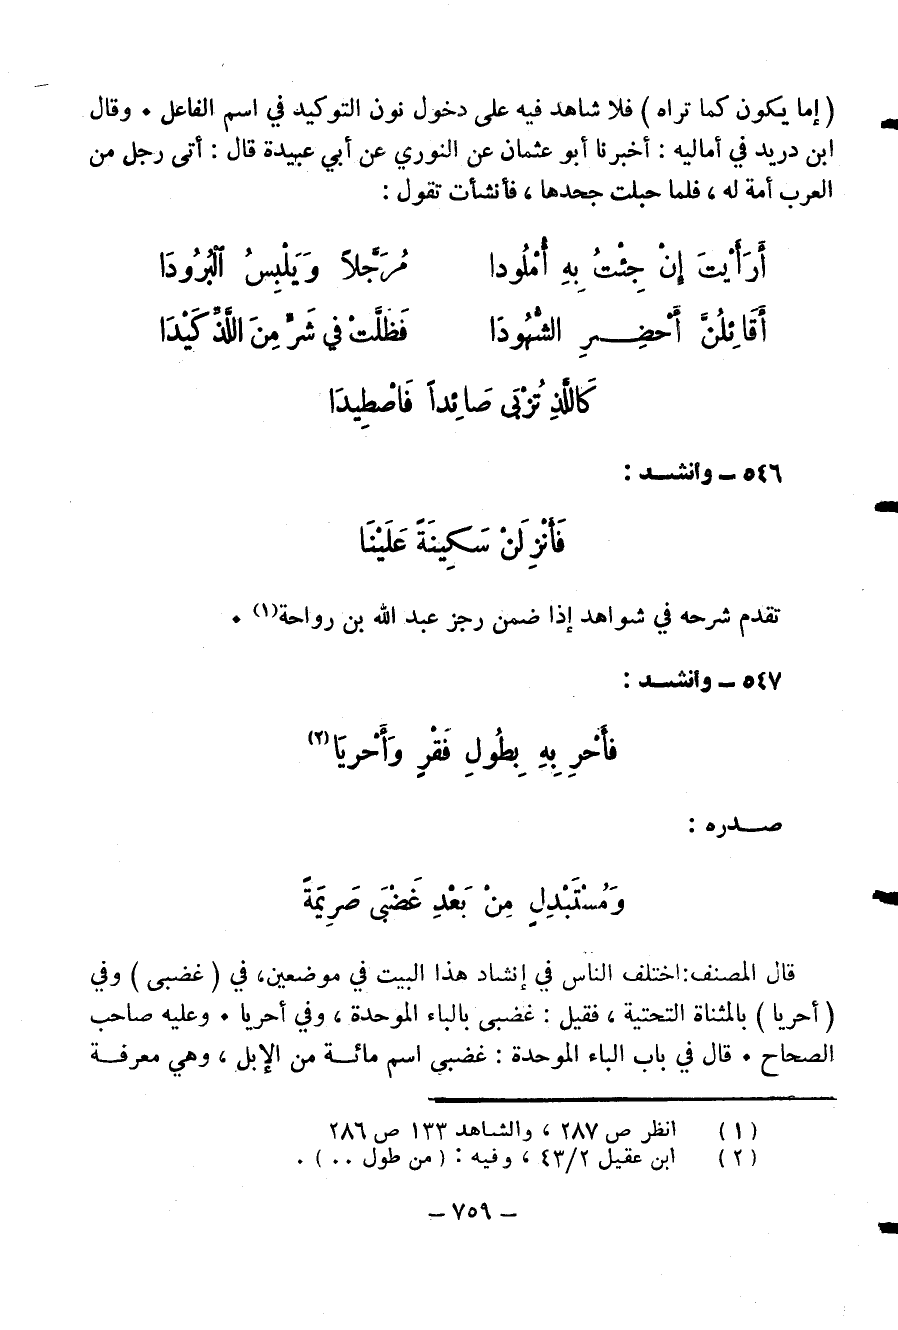 ( إما يكون كما تراه ) فلا شاهد فيه على دخول نون التوكيد في اسم الفاعل . وقال
ابن دريد في أماليه : أخبرنا أبو عثمان عن النوري عن أبي عبيدة قال : أتى رجل من
العرب أمة له ، فلما حبلت جحدها ، فأنشأت تقول :
أَرَأَيْتَ إِنْ جِئْتُ بِهِ أُمْلُودا مُرَجَّلاً وَيَلْبِسُ الْبُرُودَا
أَقَائِلُنَّ أَحْضِرِ الشُّهُودَا فَظَلَّتْ في شَرٍّ مِنَ اللَّذْ كَيْدَا
كَاللَّذِ تُزْبَى صَائِداً فَاصْطِيدَا
٥٤٦ ـ وانشد :
فَأَنْزِلَنْ سَكِينَةً عَلَيْنَا
تقدم شرحه في شواهد إذا ضمن رجز عبد الله بن رواحة(١) .
٥٤٧ ـ وانشد :
فأَحْرِ بِهِ بِطُولِ فَقْرٍ وَأَحْريَا(٢)
صدره :
وَمُسْتَبْدِلٍ مِنْ بَعْدِ غَضْبَى صَرِيمَةً
قال المصنف: اختلف الناس في إنشاد هذا البيت في موضعين، في ( غضبى ) وفي
( أحريا ) بالمثناة التحتية ، فقيل : غضبى بالباء الموحدة ، وفي أحريا . وعليه صاحب
الصحاح . قال في باب الباء الموحدة : غضبى اسم مائة من الإبل ، وهي معرفة
(١) انظر ص ٢٨٧ ، والشاهد ١٣٣ ص ٢٨٦
(٢) ابن عقيل ٤٣/٢ ، وفيه : ( من طول .. ) .
ـ ٧٥٩ ـ